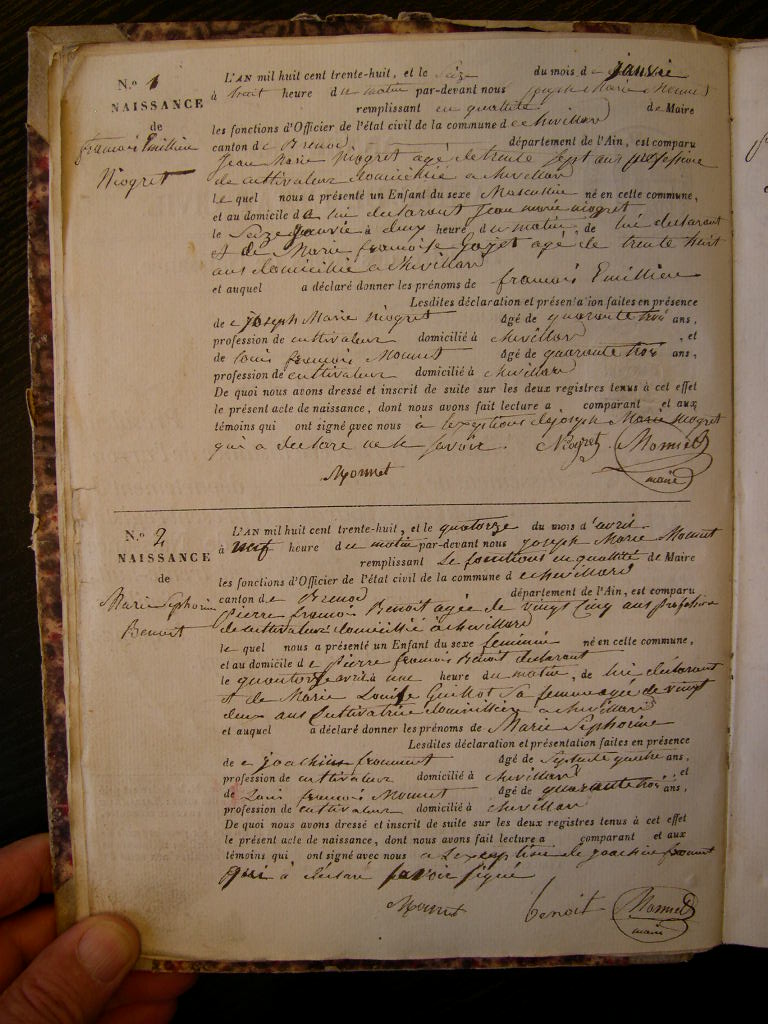 N.o 1
NAISSANCE
de
françois Emillien
Niogret
L'AN mil huit cent trente-huit, et le Seize du mois de janvie
à huit heure du matin par-devant nous joseph Marie Monnet
remplissant en quallité de Maire
les fonctions d'Officier de l'état civil de la commune de chevillard
canton de Brenod département de l'Ain, est comparu
Jean Marie Niogret agé de trente sept ans profession
de cultivateur domicillié a chevillard
Le quel nous a présenté un Enfant du sexe Masculin né en cette commune,
et au domicile de lui declarant Jean marie niogret
le Seize janvié à deux heure du matin, de lui declarant
et de Marie françoise gozet agé de trente huit
ans domicillié a chevillard
et auquel a déclaré donner les prénoms de françois Emillien
Lesdites déclaration et présentation faites en présence
de joseph Marie niogret âgé de quarante troi ans,
profession de cultivateur domicilié à chevillard, et
de louis françois Monnet âgé de quarante troi ans,
profession de cultivateur domicilié à chevillard
De quoi nous avons dressé et inscrit de suite sur les deux registres tenus à cet effet
le présent acte de naissance, dont nous avons fait lecture a comparant et aux
témoins qui ont signé avec nous à lexception de joseph Marie niogret
qui a declaré ne le savoir. Niogret Monnet
Monnet maire
N.o 2
NAISSANCE
de
Marie Sephorine
Benoit
L'AN mil huit cent trente-huit, et le quatorze du mois d'avril
à neuf heure du matin par-devant nous joseph Marie Monnet
remplissant Le fonctions en quallité de Maire
les fonctions d'Officier de l'état civil de la commune de chevillard
canton de Brenod département de l'Ain, est comparu
Pierre françois Benoit agée de vingt Cinq ans profession
de cultivateur domicillié a chevillard
le quel nous a présenté un Enfant du sexe feminin né en cette commune,
et au domicile de Pierre françois Benoit declarant
le quatorze avril à une heure du matin, de lui declarant
et de Marie Louise Guillot Sa femme agée de vingt
deux ans Cultivatrice domicillié a chevillard
et auquel a déclaré donner les prénoms de Marie Sephorine
Lesdites déclaration et présentation faites en présence
de joachim froment âgé de Septante quatre ans,
profession de cultivateur domicilié à chevillard, et
de Louis françois Monnet âgé de quarante troi ans,
profession de cultivateur domicilié à chevillard
De quoi nous avons dressé et inscrit de suite sur les deux registres tenus à cet effet
le présent acte de naissance, dont nous avons fait lecture a comparant et aux
témoins qui ont signé avec nous a Lexception de joachim froment
qui a déclaré savoir signé
Monnet benoit Monnet
maire